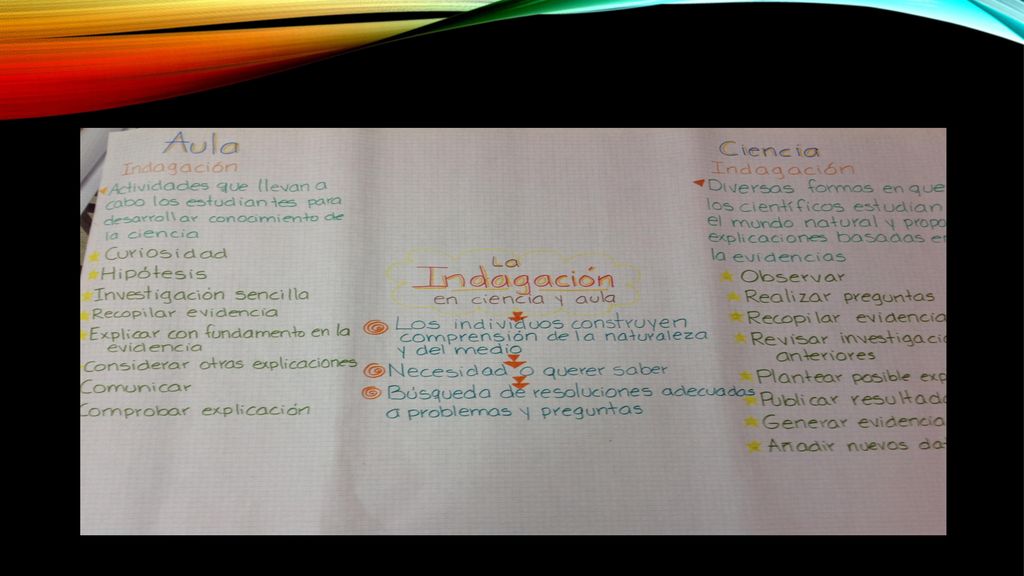 Aula
Indagación
Actividades que llevan a
cabo los estudiantes para
desarrollar conocimiento de
la ciencia
Curiosidad
Hipótesis
Investigación sencilla
Recopilar evidencia
Explicar con fundamento en la
evidencia
Considerar otras explicaciones
Comunicar
Comprobar explicación
La
Indagación
en ciencia y aula
Los individuos construyen
comprensión de la naturaleza
y del medio
Necesidad o querer saber
Búsqueda de resoluciones adecuadas
a problemas y preguntas
Ciencia
Indagación
Diversas formas en que
los científicos estudian
el mundo natural y propo
explicaciones basadas en
la evidencias
Observar
Realizar preguntas
Recopilar evidencia
Revisar investigacio
anteriores
Plantear posible exp
Publicar resultado
Generar evidencia
Añadir nuevos da